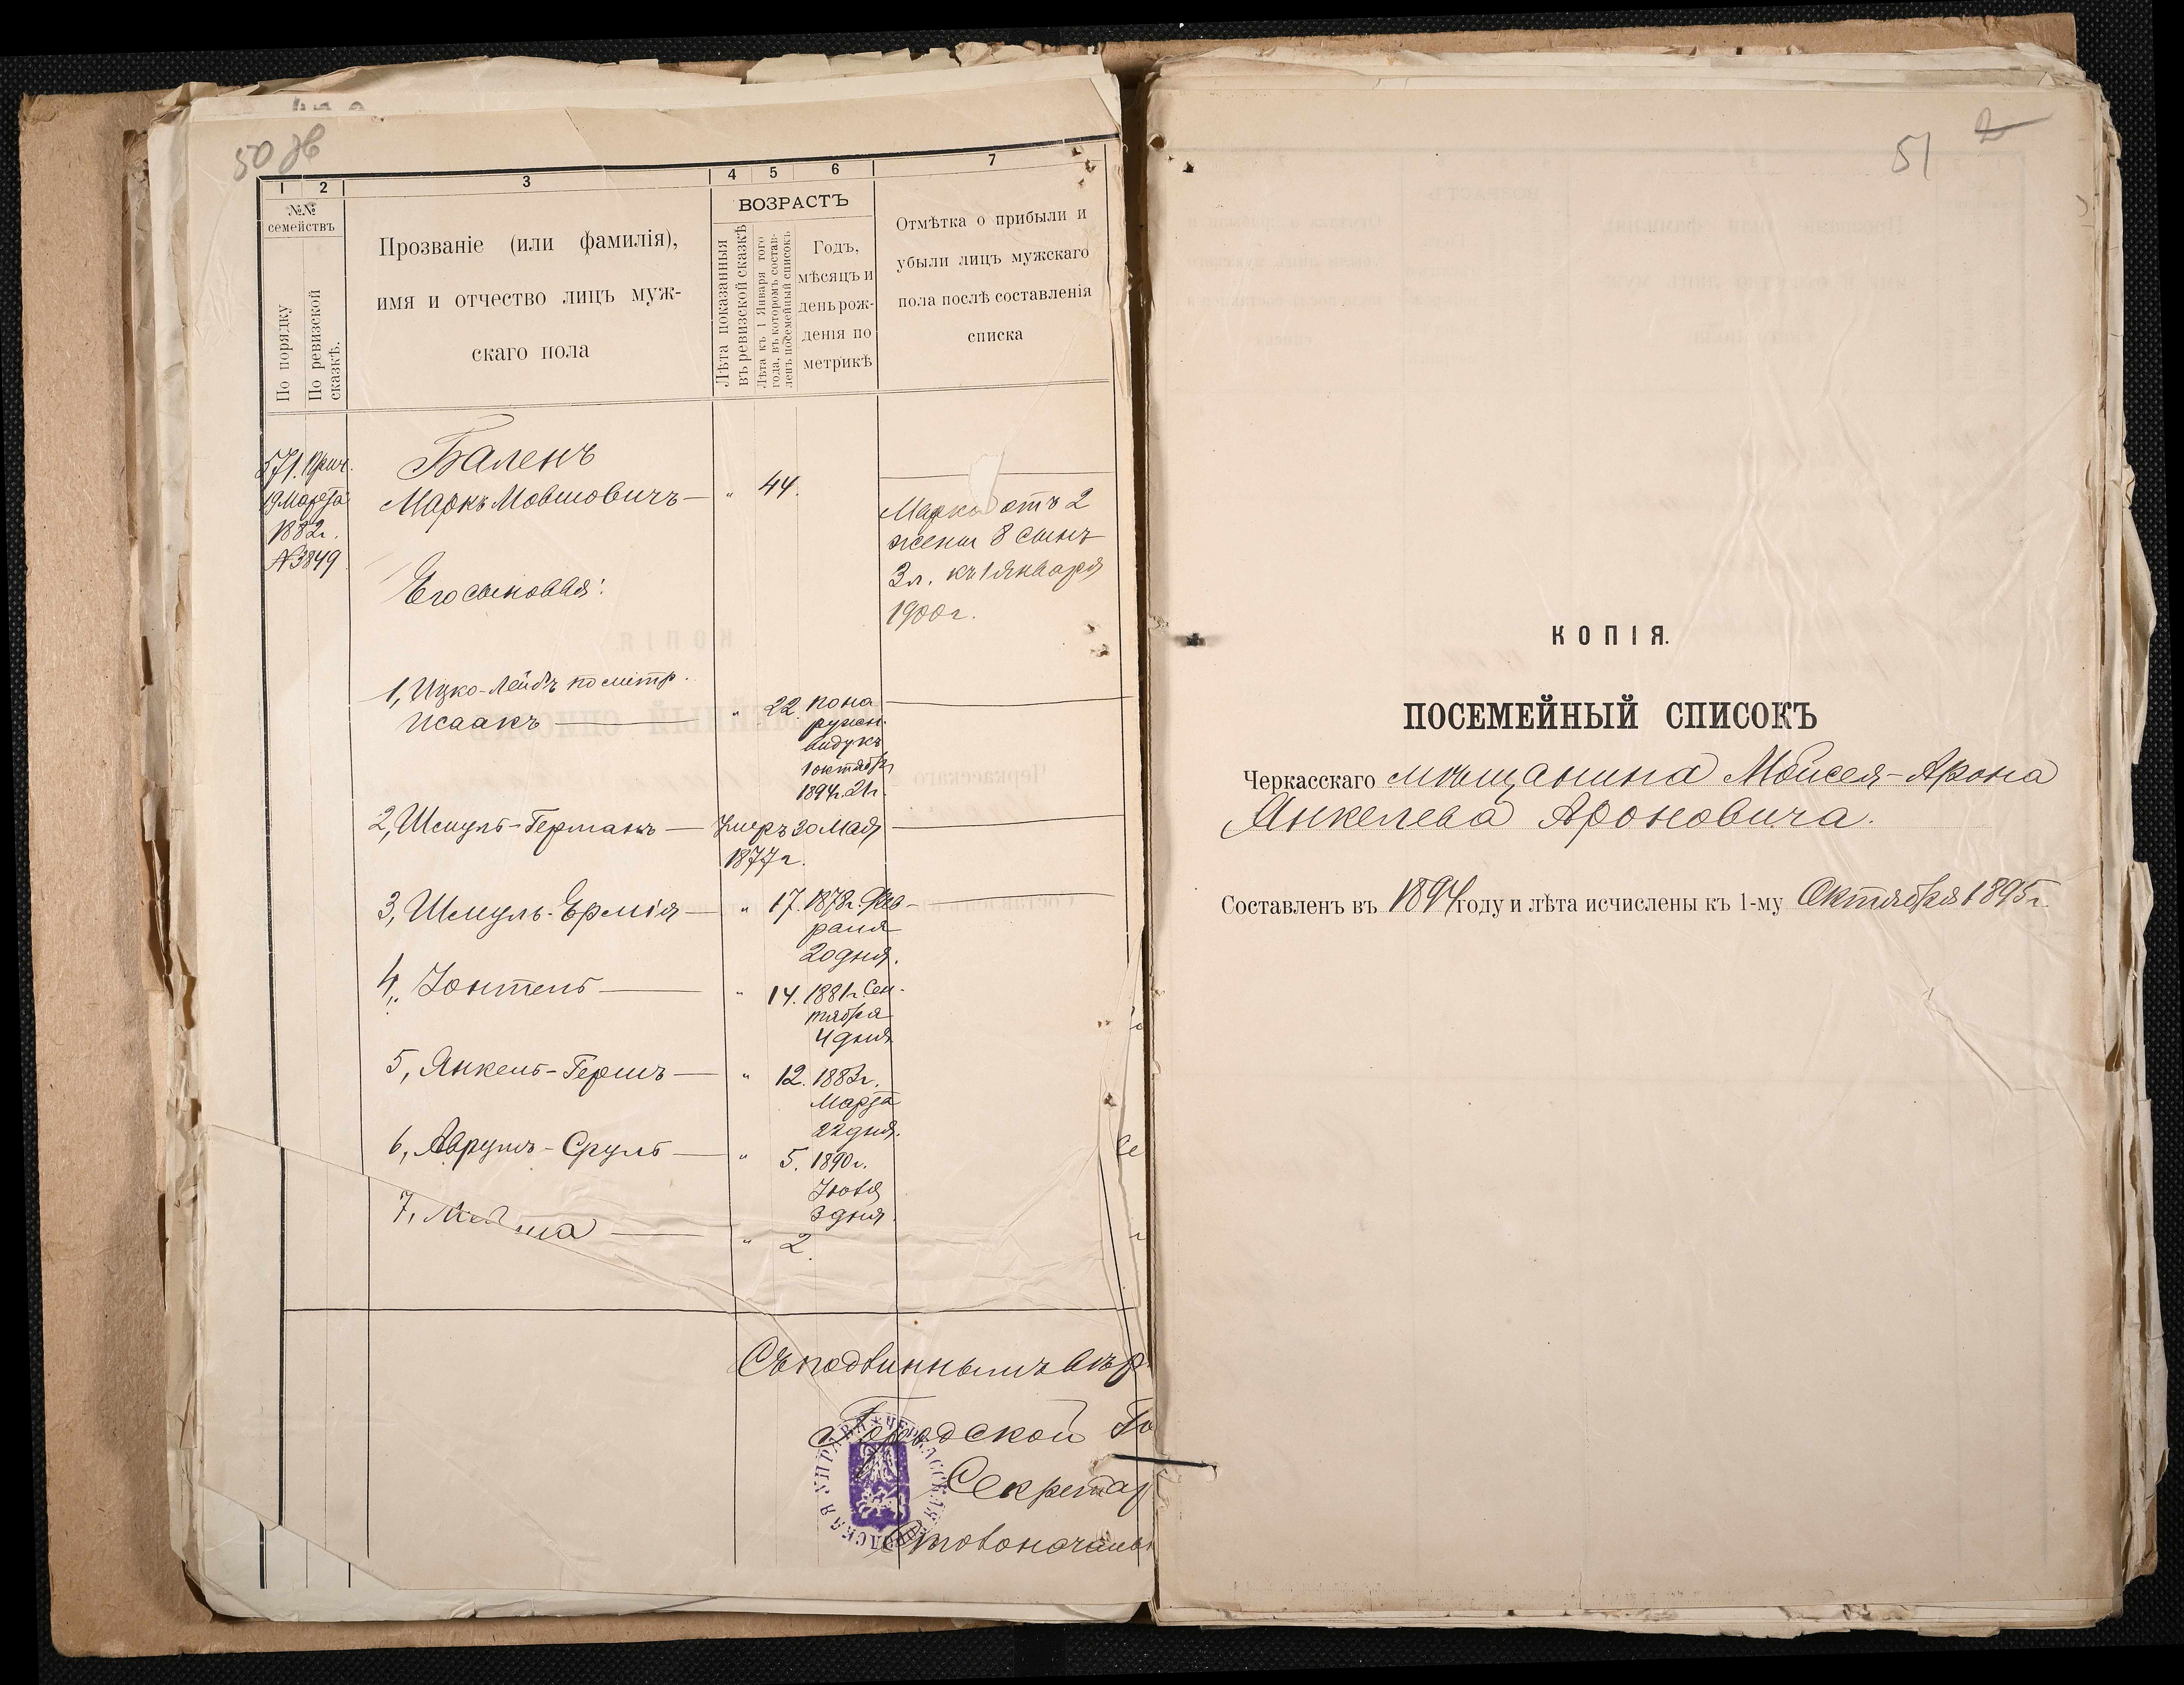 50 об
1 2 3 4 5 6 7
№№
семействъ
По порядку
По ревизской
сказкѣ.
Прозваніе (или фамилія),
имя и отчество лицъ муж-
скаго пола
ВОЗРАСТЪ
Лѣта показанныя
въ ревизской сказкѣ
Лѣта къ 1 Января того
года, въ которомъ состав-
ленъ посемейный списокъ.
Годъ,
мѣсяцъ и
день рож-
денія по
метрикѣ
Отмѣтка о прибыли и
убыли лицъ мужскаго
пола послѣ составленія
списка
571. Прич.
19 Марта
1882г.
№3849
Баленъ
Маркъ Мовшовичъ — „ 44.
Марка отъ 2
жены 8 сынъ
3 л. къ 1 Января
1900г.
Его сыновья:
1, Ицко-Лейбъ по метр.
Исаакъ — „ 22. по на
ружн.
виду къ
1 октября
1894г. 21г.
2, Шмуль-Германъ — Умеръ 30 Мая
1877г.
3, Шмуль-Ермія — „ 17. 1878г. Фев-
раля
20 дня.
4, Іонтель — „ 14. 1881г. Сен-
тября
4 дня
5, Янкель-Гершъ — „ 12. 1883г.
Марта
22 дня.
6, Аврумъ-Сруль — „ 5. 1890г.
Іюля
3 дня.
7, — „ 2.
Съ подлиннымъ вѣр
Городской Го
Секретар
Столоначаль
51
2
КОПІЯ.
ПОСЕМЕЙНЫЙ СПИСОКЪ
Черкасскаго мѣщанина Мойсея-Арона
Янкелева Ароновича.
Составленъ въ 1894 году и лѣта исчислены къ 1-му Октября 1895г.